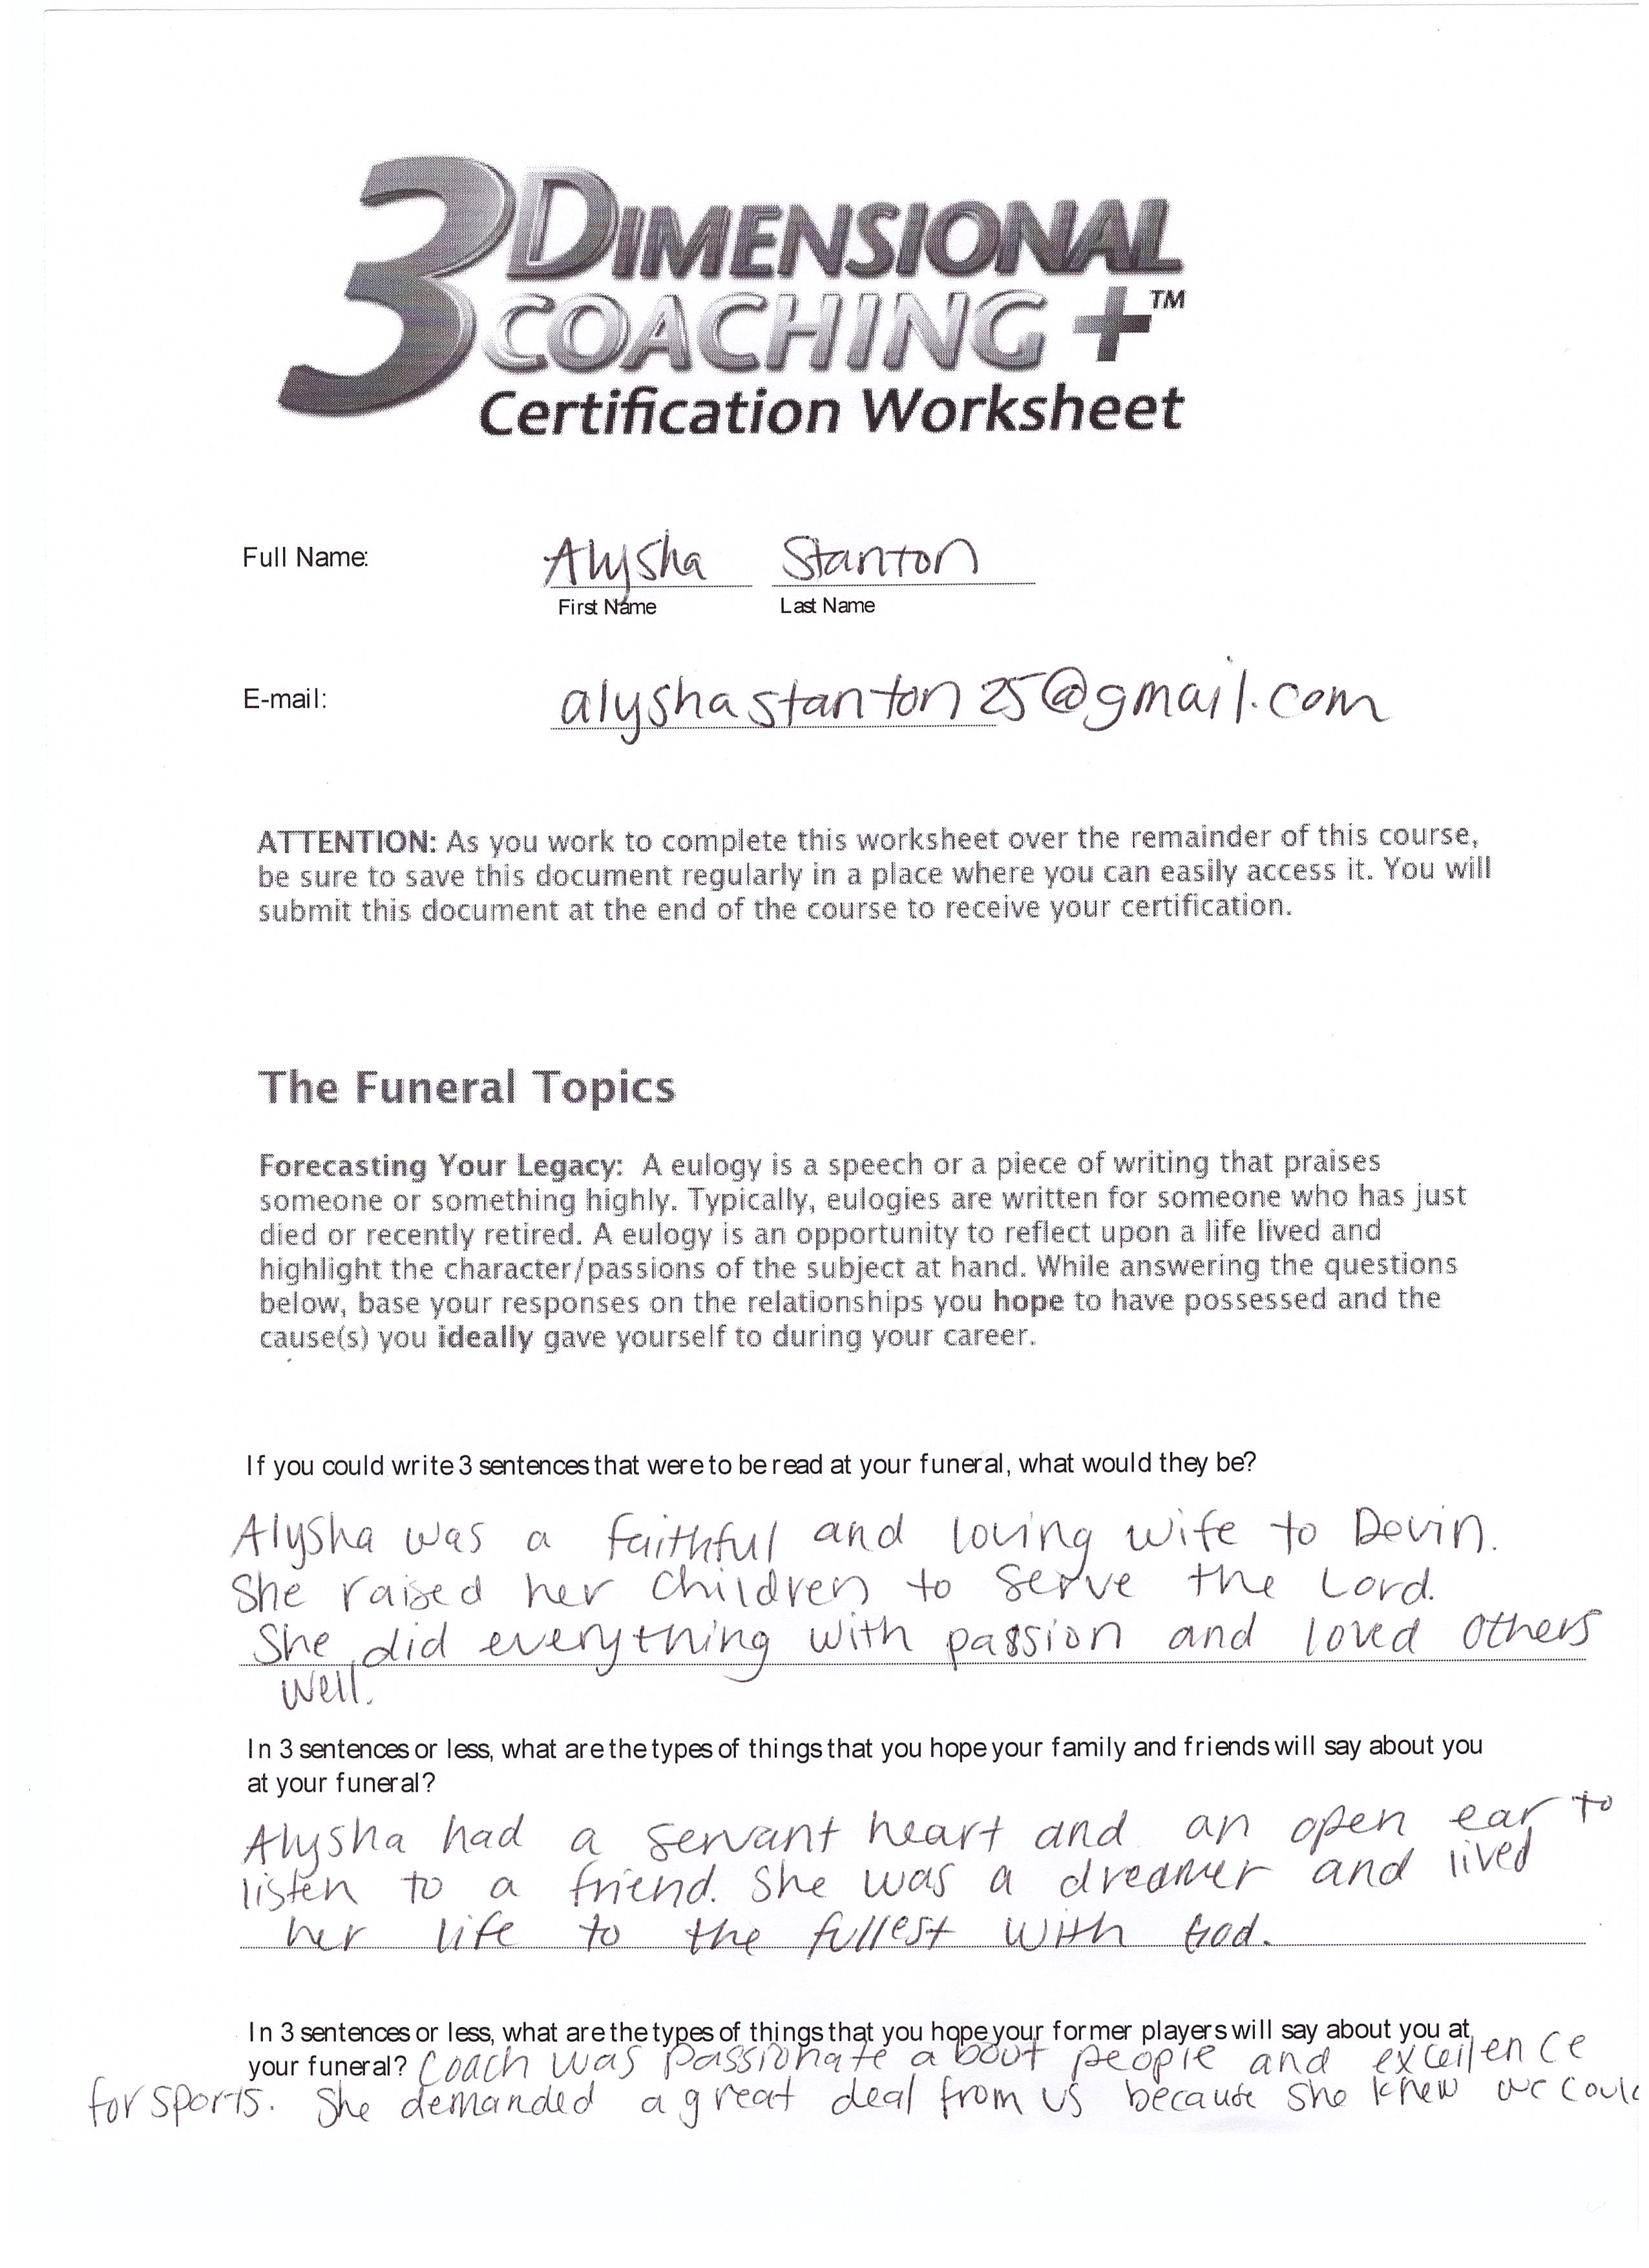 3 DIMENSIONAL
COACHING +™
Certification Worksheet
Full Name: Alysha Stanton
First Name Last Name
E-mail: alyshastanton25@gmail.com
ATTENTION: As you work to complete this worksheet over the remainder of this course,
be sure to save this document regularly in a place where you can easily access it. You will
submit this document at the end of the course to receive your certification.
The Funeral Topics
Forecasting Your Legacy: A eulogy is a speech or a piece of writing that praises
someone or something highly. Typically, eulogies are written for someone who has just
died or recently retired. A eulogy is an opportunity to reflect upon a life lived and
highlight the character/passions of the subject at hand. While answering the questions
below, base your responses on the relationships you hope to have possessed and the
cause(s) you ideally gave yourself to during your career.
If you could write 3 sentences that were to be read at your funeral, what would they be?
Alysha was a faithful and loving wife to Devin.
She raised her children to serve the Lord.
She did everything with passion and loved others
well.
In 3 sentences or less, what are the types of things that you hope your family and friends will say about you
at your funeral?
Alysha had a servant heart and an open ear to
listen to a friend. She was a dreamer and lived
her life to the fullest with God.
In 3 sentences or less, what are the types of things that you hope your former players will say about you at
your funeral? Coach was passionate about people and excellence
for sports. She demanded a great deal from us because she knew we could